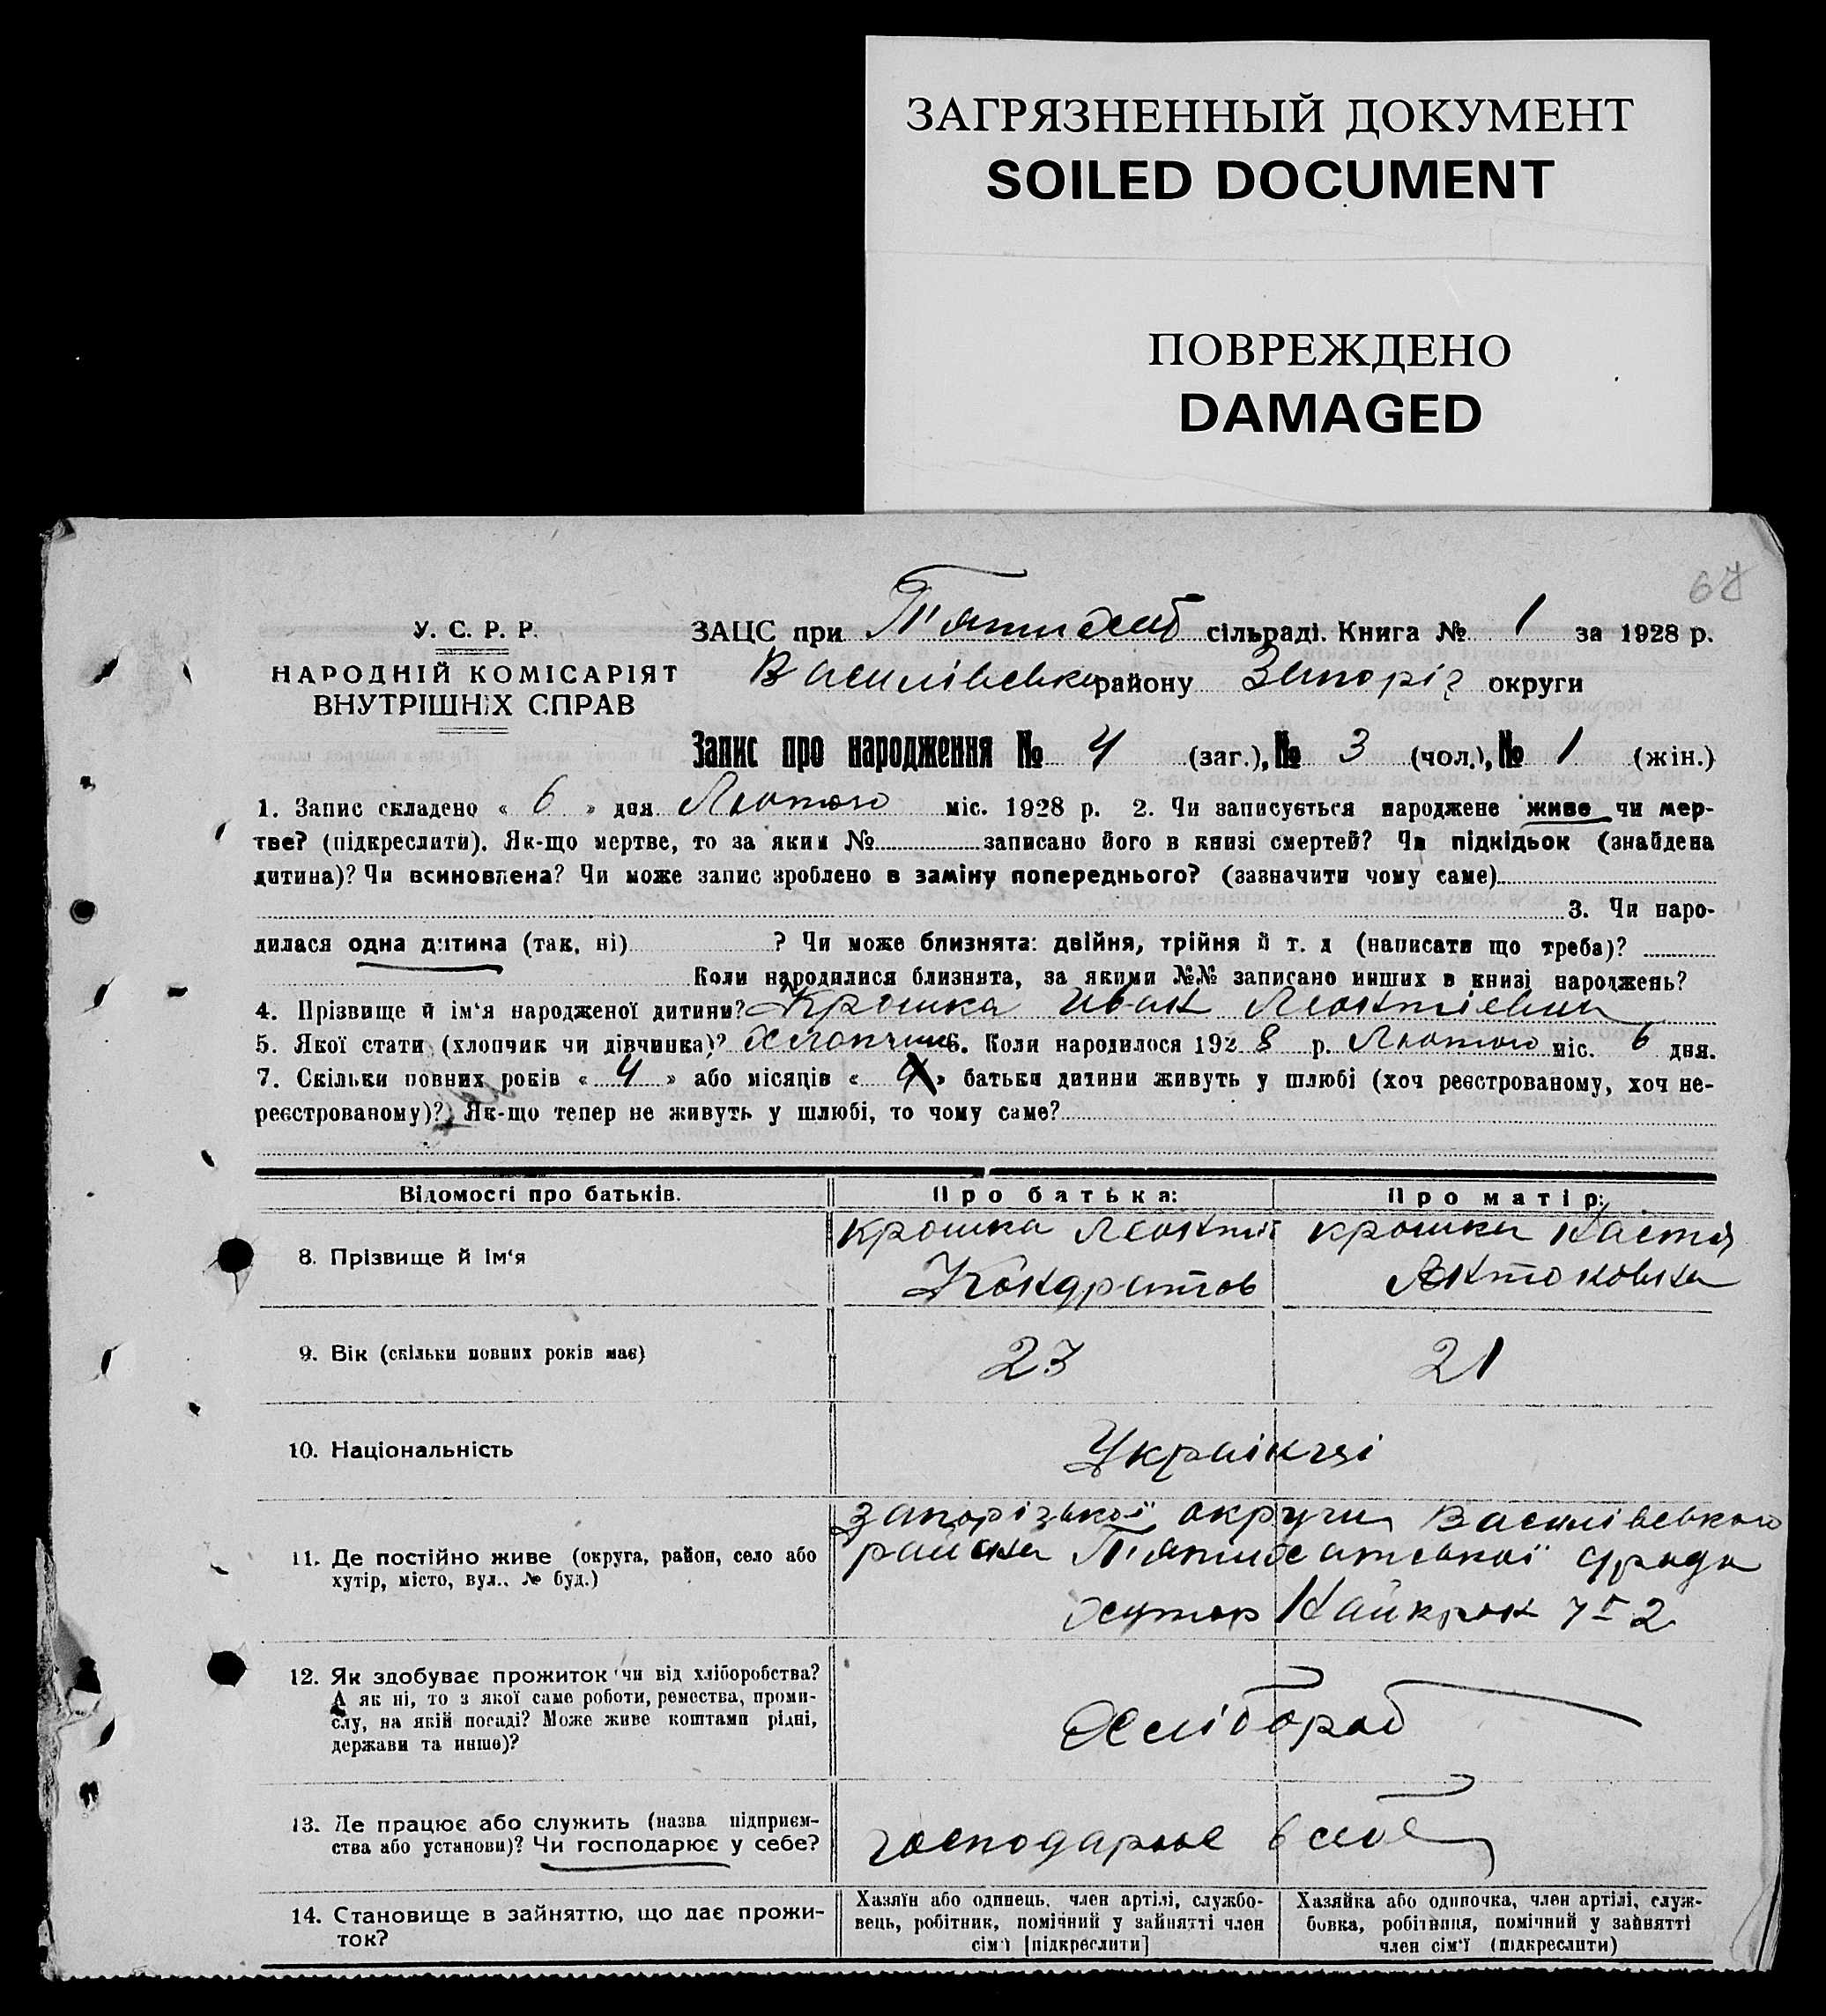 ЗАГРЯЗНЕННЫЙ ДОКУМЕНТ
SOILED DOCUMENT
ПОВРЕЖДЕНО
DAMAGED
У. С. Р. Р.
НАРОДНІЙ КОМІСАРІЯТ
ВНУТРІШНІХ СПРАВ
ЗАЦС при П'ятихат сільраді. Книга № 1 за 1928 р.
Василівськ району Запоріз округи
Запис про народження № 4 (заг.), № 3 (чол.), № 1 (жін.)
1. Запис складено « 6 » дня Лютого міс. 1928 р. 2. Чи записується народжене живе чи мер-
тве? (підкреслити). Як-що мертве, то за яким № записано його в книзі смертей? Чи підкідьок (знайдена
дитина)? Чи всиновлена? Чи може запис зроблено в заміну попереднього? (зазначити чому саме)
3. Чи наро-
дилася одна дитина (так, ні) ? Чи може близнята: двійня, трійня й т. д (написати що треба)?
Коли народилися близнята, за якими №№ записано инших в книзі народжень?
4. Прізвище й ім'я народженої дитини? Крошка Иван Леонтієвич
5. Якої стати (хлопчик чи дівчинка)? Хлопчик 6. Коли народилося 1928 р. Лютого міс. 6 дня.
7. Скільки повних років « 4 » або місяців « » батьки дитини живуть у шлюбі (хоч реєстрованому, хоч не-
реєстрованому)? Як-що тепер не живуть у шлюбі, то чому саме?
Відомості про батьків. Про батька: Про матір:
8. Прізвище й ім'я
Крошка Леонтій крошка Настя
Кондратов Антоновна
9. Вік (скільки повних років має) 23 21
10. Національність Українці
11. Де постійно живе (округа, район, село або
хутір, місто, вул.. № буд.)
Запорізької округи Василівського
района П'ятихатської
хутор
12. Як здобуває прожиток чи від хліборобства?
А як ні, то з якої саме роботи, ремества, проми-
слу, на якій посаді? Може живе коштами рідні,
держави та инше)?
Хлібороб
13. Де працює або служить (назва підприєм-
ства або установи)? Чи господарює у себе?
господарює в себе
14. Становище в зайняттю, що дає прожи-
ток?
Хазяїн або одинець, член артілі, службо-
вець, робітник, помічний у зайнятті член
сім'ї [підкреслити]
Хазяйка або одиночка, член артілі, служ-
бовка, робітниця, помічний у зайнятті
член сім'ї (підкреслити)